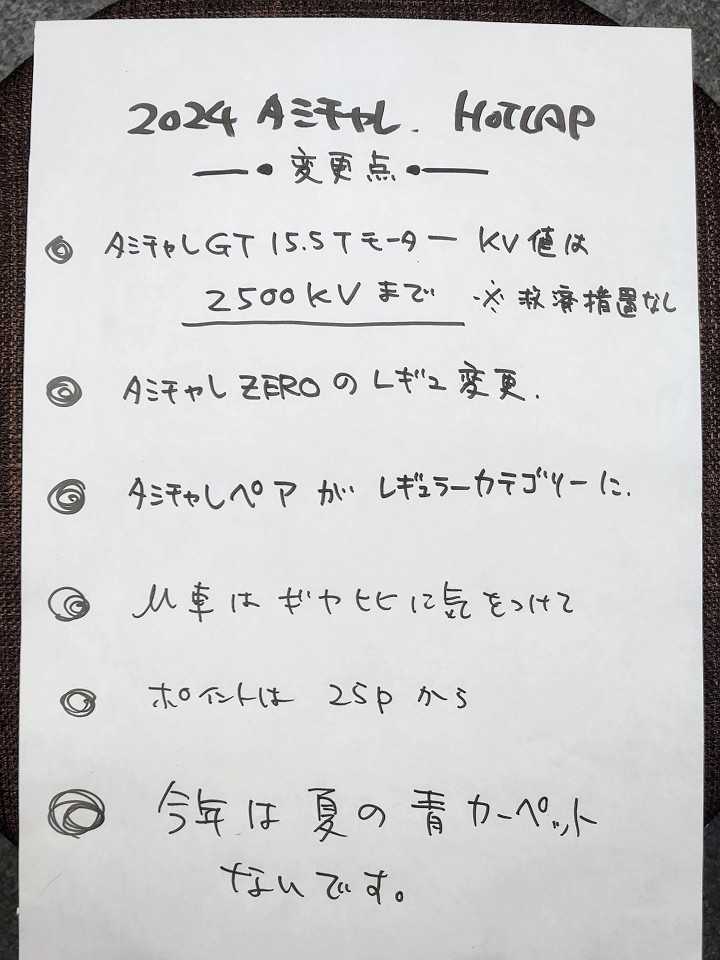 2024 タミチャレ. HOTLAP
変更点
タミチャレGT 15.5Tモーター KV値は
2500KVまで ※救済措置なし
タミチャレZEROのレギュ変更.
タミチャレペアがレギュラーカテゴリーに.
M車はギヤ比に気をつけて
ポイントは 25pから
今年は夏の青カーペット
ないです。